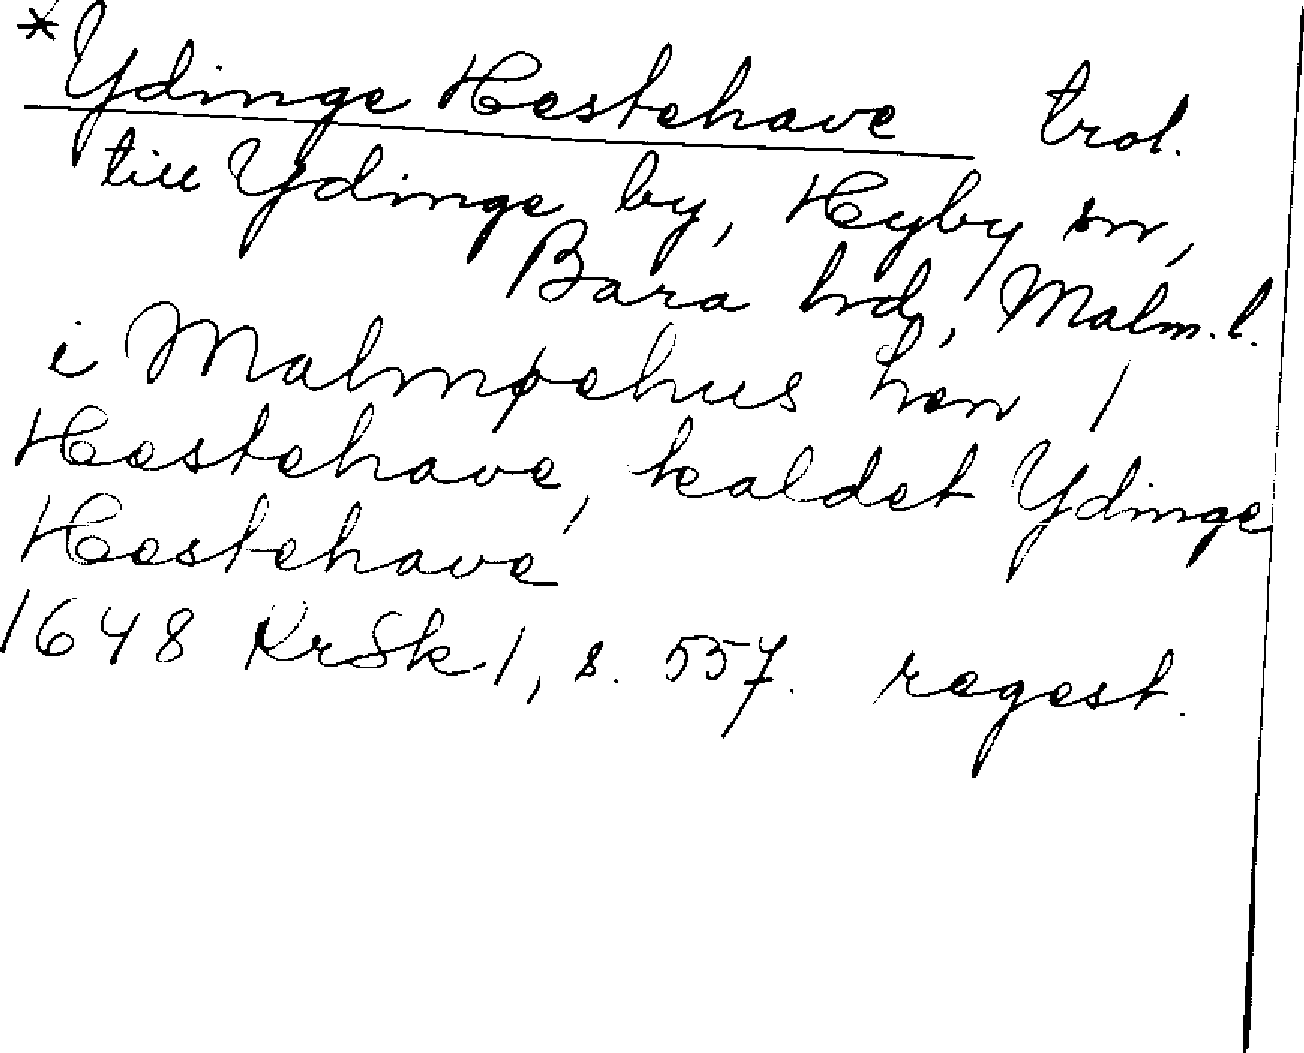 *Ydinge Hestehave trol.
till Ydinge by, Hyby sn,
Bara hd, Malm. l.
i Malmøehus len 1
Hestehave, kaldet Ydinge
Hestehave
1648 KrSk 1, s. 557. regest.